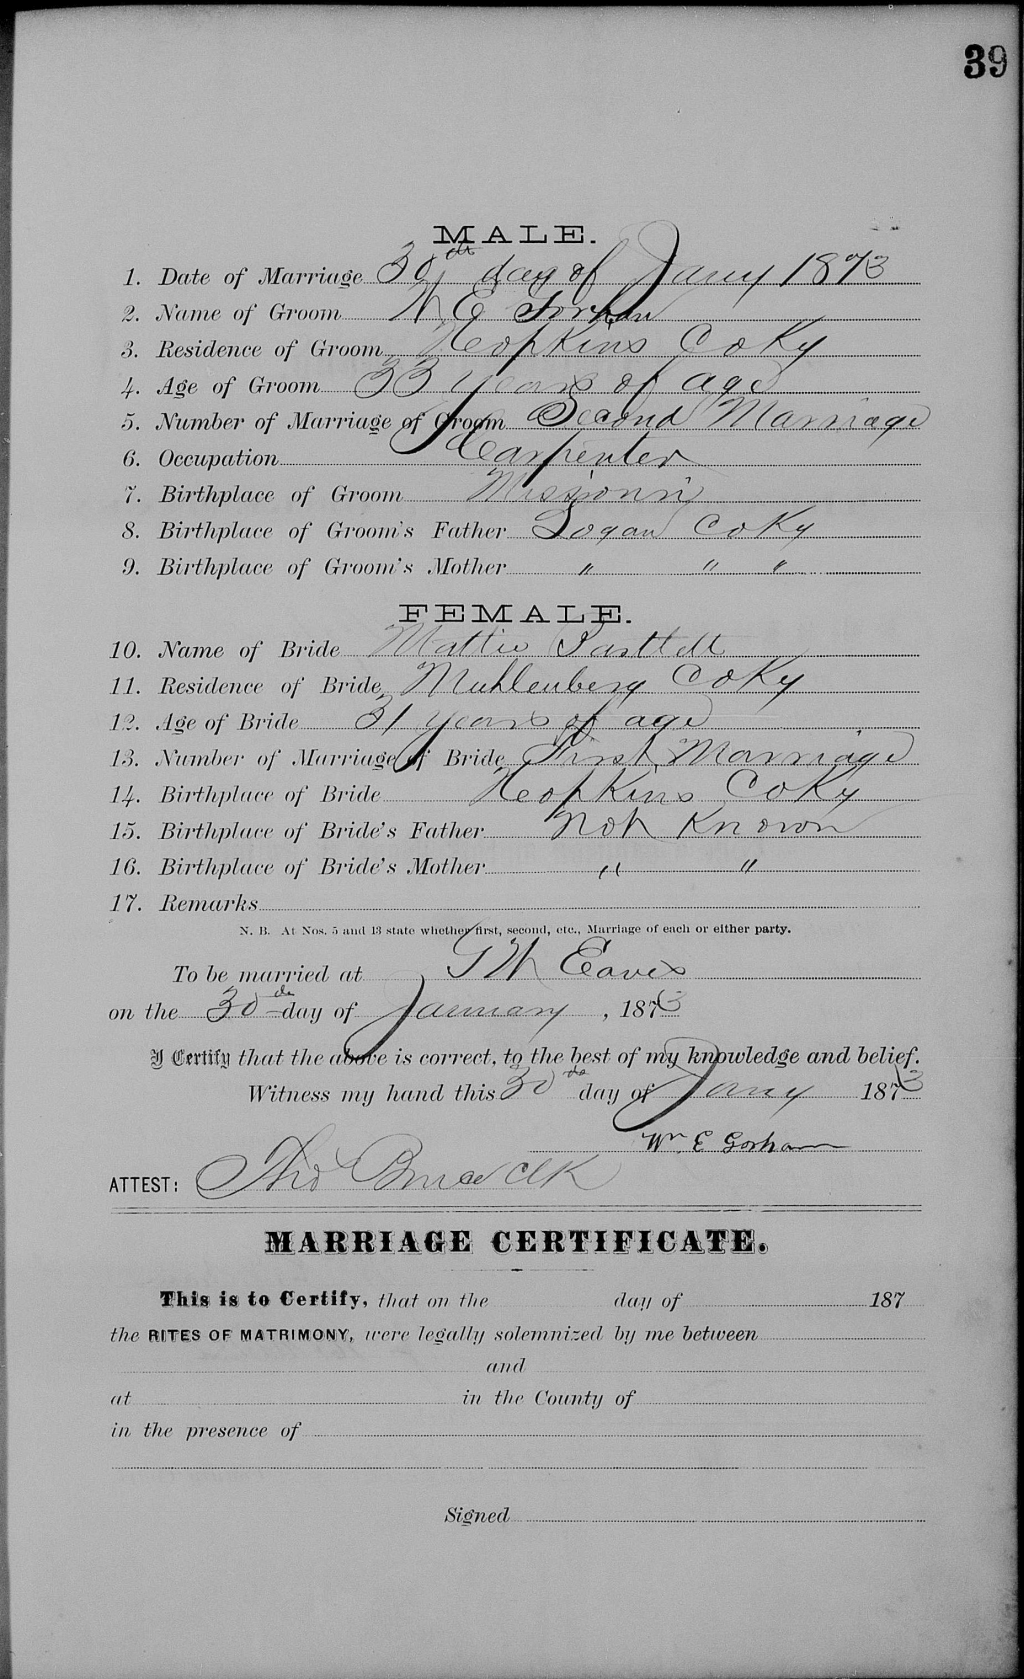 39
MALE.
1. Date of Marriage 30th day of Jany 1873
2. Name of Groom W E Gorham
3. Residence of Groom Hopkins Co Ky
4. Age of Groom 33 years of age
5. Number of Marriage of Groom Second Marriage
6. Occupation Carpenter
7. Birthplace of Groom Missouri
8. Birthplace of Groom's Father Logan Co Ky
9. Birthplace of Groom's Mother " " "
FEMALE.
10. Name of Bride Mattie
11. Residence of Bride Muhlenberg Co Ky
12. Age of Bride 31 years of age
13. Number of Marriage of Bride First Marriage
14. Birthplace of Bride Hopkins Co Ky
15. Birthplace of Bride's Father Not Known
16. Birthplace of Bride's Mother " "
17. Remarks
N. B. At Nos. 5 and 13 state whether first, second, etc., Marriage of each or either party.
To be married at Eaves
on the 30th day of January, 1873
I Certify that the above is correct, to the best of my knowledge and belief.
Witness my hand this 30th day of Jany 1873
Wm. E Gorham
ATTEST: Tho Bruce Clk
MARRIAGE CERTIFICATE.
This is to Certify, that on the day of 187
the RITES OF MATRIMONY, were legally solemnized by me between
and
at in the County of
in the presence of
Signed